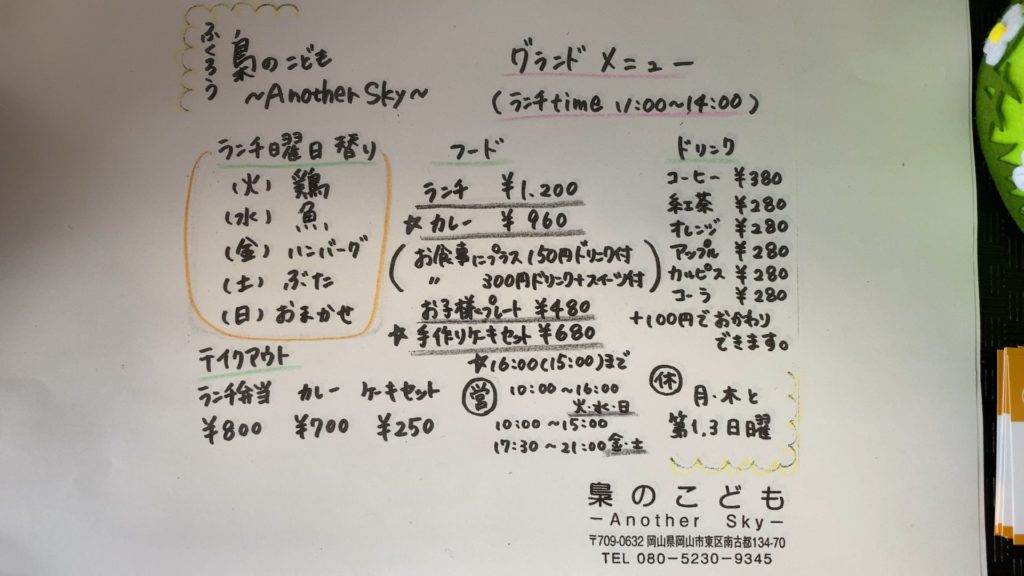 ふくろう
梟のこども
~Another Sky~
グランドメニュー
(ランチtime 11:00~14:00)
ランチ日曜日替り
(火) 鶏
(水) 魚
(金) ハンバーグ
(土) ぶた
(日) おまかせ
フード
ランチ ¥1,200
☆カレー ¥960
(お食事にプラス150円ドリンク付
〃 300円ドリンク+スイーツ付)
お子様プレート ¥480
☆手作りケーキセット ¥680
☆16:00(15:00)まで
ドリンク
コーヒー ¥380
紅茶 ¥280
オレンジ ¥280
アップル ¥280
カルピス ¥280
コーラ ¥280
+100円でおかわり
できます。
テイクアウト
ランチ弁当 カレー ケーキセット
¥800 ¥700 ¥250
営 10:00~16:00
火・水・日
10:00~15:00
17:30~21:00 金・土
休 月・木と
第1.3日曜
梟のこども
-Another Sky-
〒709-0632 岡山県岡山市東区南古都134-70
TEL 080-5230-9345